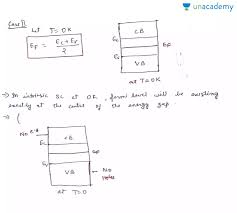 unacademy
Case I:
Let T=0K
EF = (EC + EV) / 2
EC
CB
EF
EV
VB
at T=0K
→ In intrinsic SC at 0K, fermi level will be existing
exactly at the center of the energy gap.
→ (
No e⁻s
CB
EC
EF
EV
VB
No
Holes
at T=0